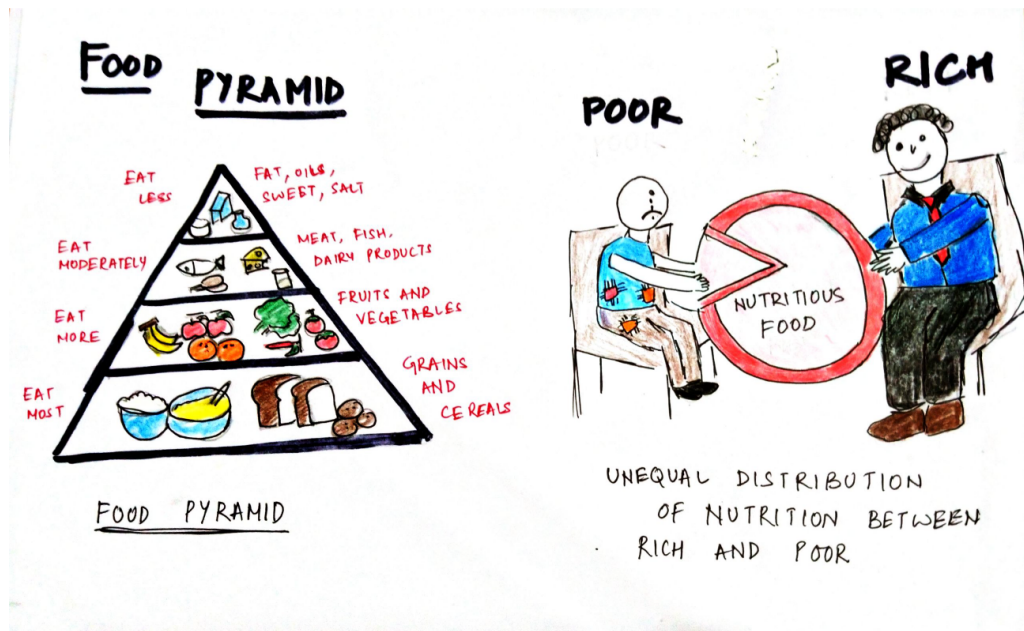 FOOD
PYRAMID
EAT
LESS
FAT, OILS,
SWEET, SALT
EAT
MODERATELY
MEAT, FISH,
DAIRY PRODUCTS
EAT
MORE
FRUITS AND
VEGETABLES
EAT
MOST
GRAINS
AND
CEREALS
FOOD PYRAMID
POOR
RICH
NUTRITIOUS
FOOD
UNEQUAL DISTRIBUTION
OF NUTRITION BETWEEN
RICH AND POOR